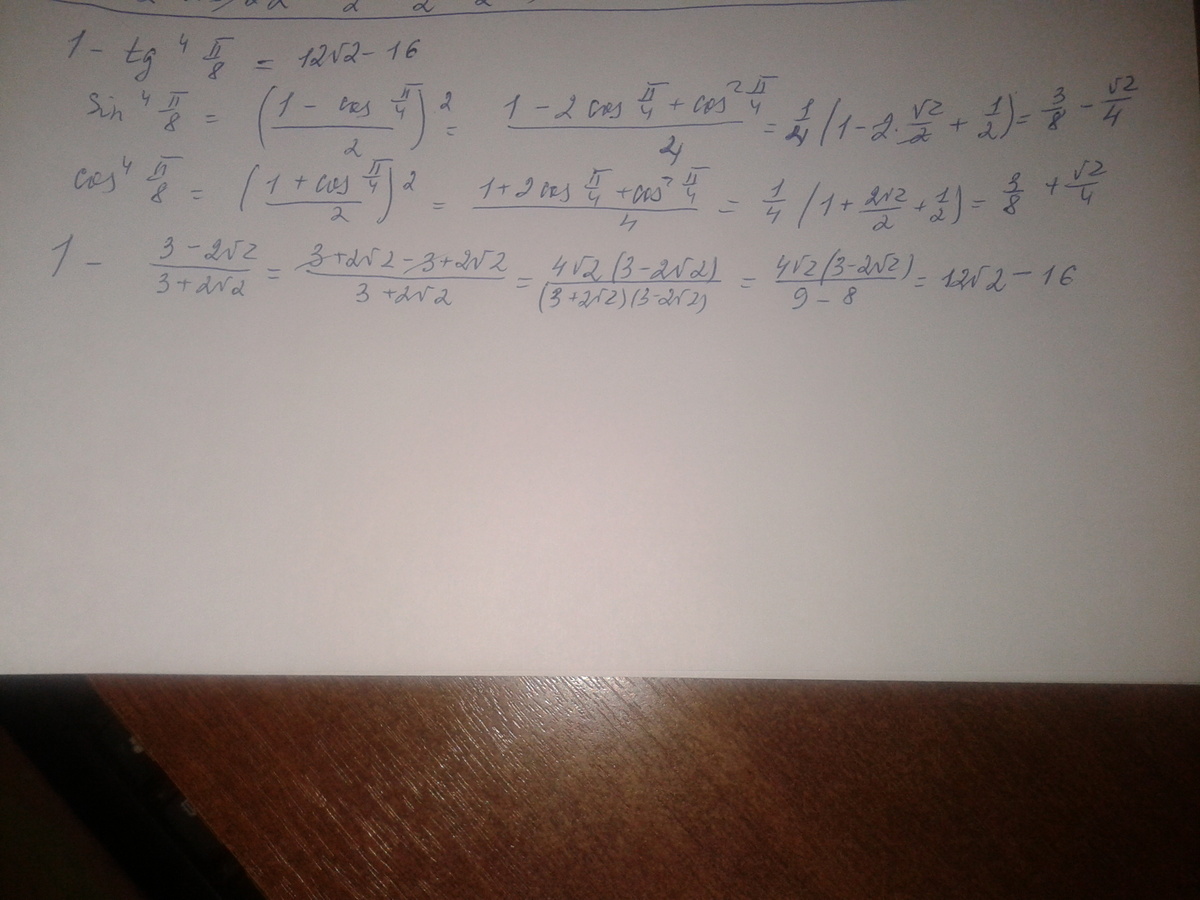 1 - tg⁴ π/8 = 12√2 - 16
Sin⁴ π/8 = ((1 - cos π/4)/2)² = (1 - 2 cos π/4 + cos² π/4)/4 = 1/4 (1 - 2·√2/2 + 1/2) = 3/8 - √2/4
cos⁴ π/8 = ((1 + cos π/4)/2)² = (1 + 2 cos π/4 + cos² π/4)/4 = 1/4 (1 + 2√2/2 + 1/2) = 3/8 + √2/4
1 - (3 - 2√2)/(3 + 2√2) = (3 + 2√2 - 3 + 2√2)/(3 + 2√2) = (4√2 (3 - 2√2))/((3 + 2√2)(3 - 2√2)) = (4√2 (3 - 2√2))/(9 - 8) = 12√2 - 16